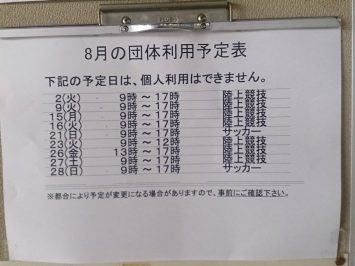 8月の団体利用予定表
下記の予定日は、個人利用はできません。
2(火) 9時～17時 陸上競技
9(火) 9時～17時 陸上競技
15(月) 9時～17時 陸上競技
16(火) 9時～17時 陸上競技
21(日) 9時～17時 サッカー
23(火) 9時～12時 陸上競技
26(金) 13時～17時 陸上競技
27(土) 9時～17時 陸上競技
28(日) 9時～17時 サッカー
※都合により予定が変更になる場合がありますので、事前にご確認下さい。